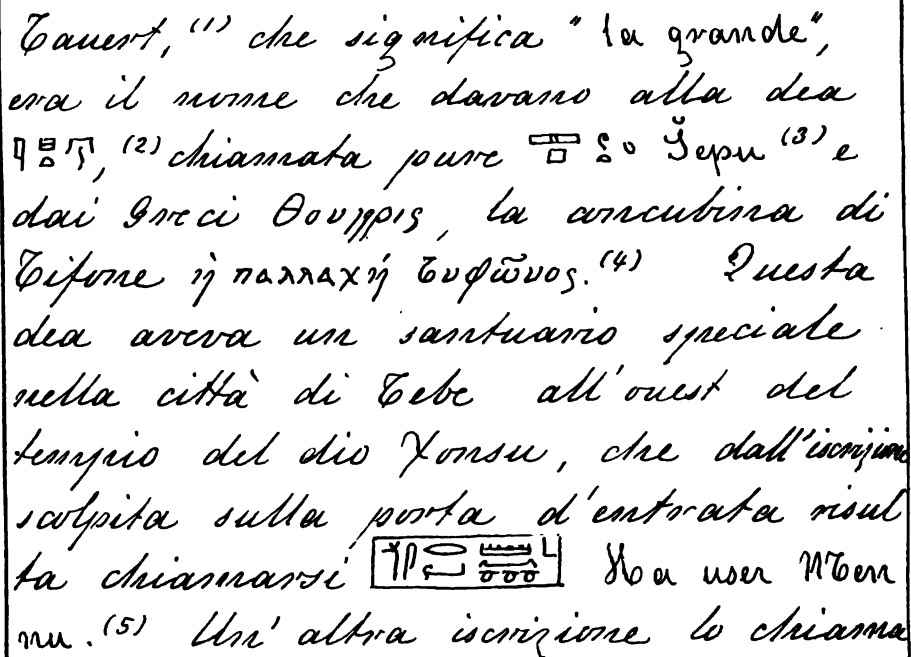 Tauert, (1) che significa "la grande",
era il nome che davano alla dea
, (2) chiamata pure Šepu (3) e
dai Greci Θουηρις, la concubina di
Tifone ἡ παλλαχή Τυφῶνος. (4) Questa
dea aveva un santuario speciale
nella città di Tebe all'ouest del
tempio del dio Χonsu, che dall'iscrizione
scolpita sulla porta d'entrata risul
ta chiamarsi Ha user
nu. (5) Un' altra iscrizione lo chiama